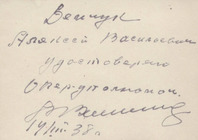 Венчук
Алексей Васильевич
удостоверяю
Оперуполномоч.
14/III-38 г.